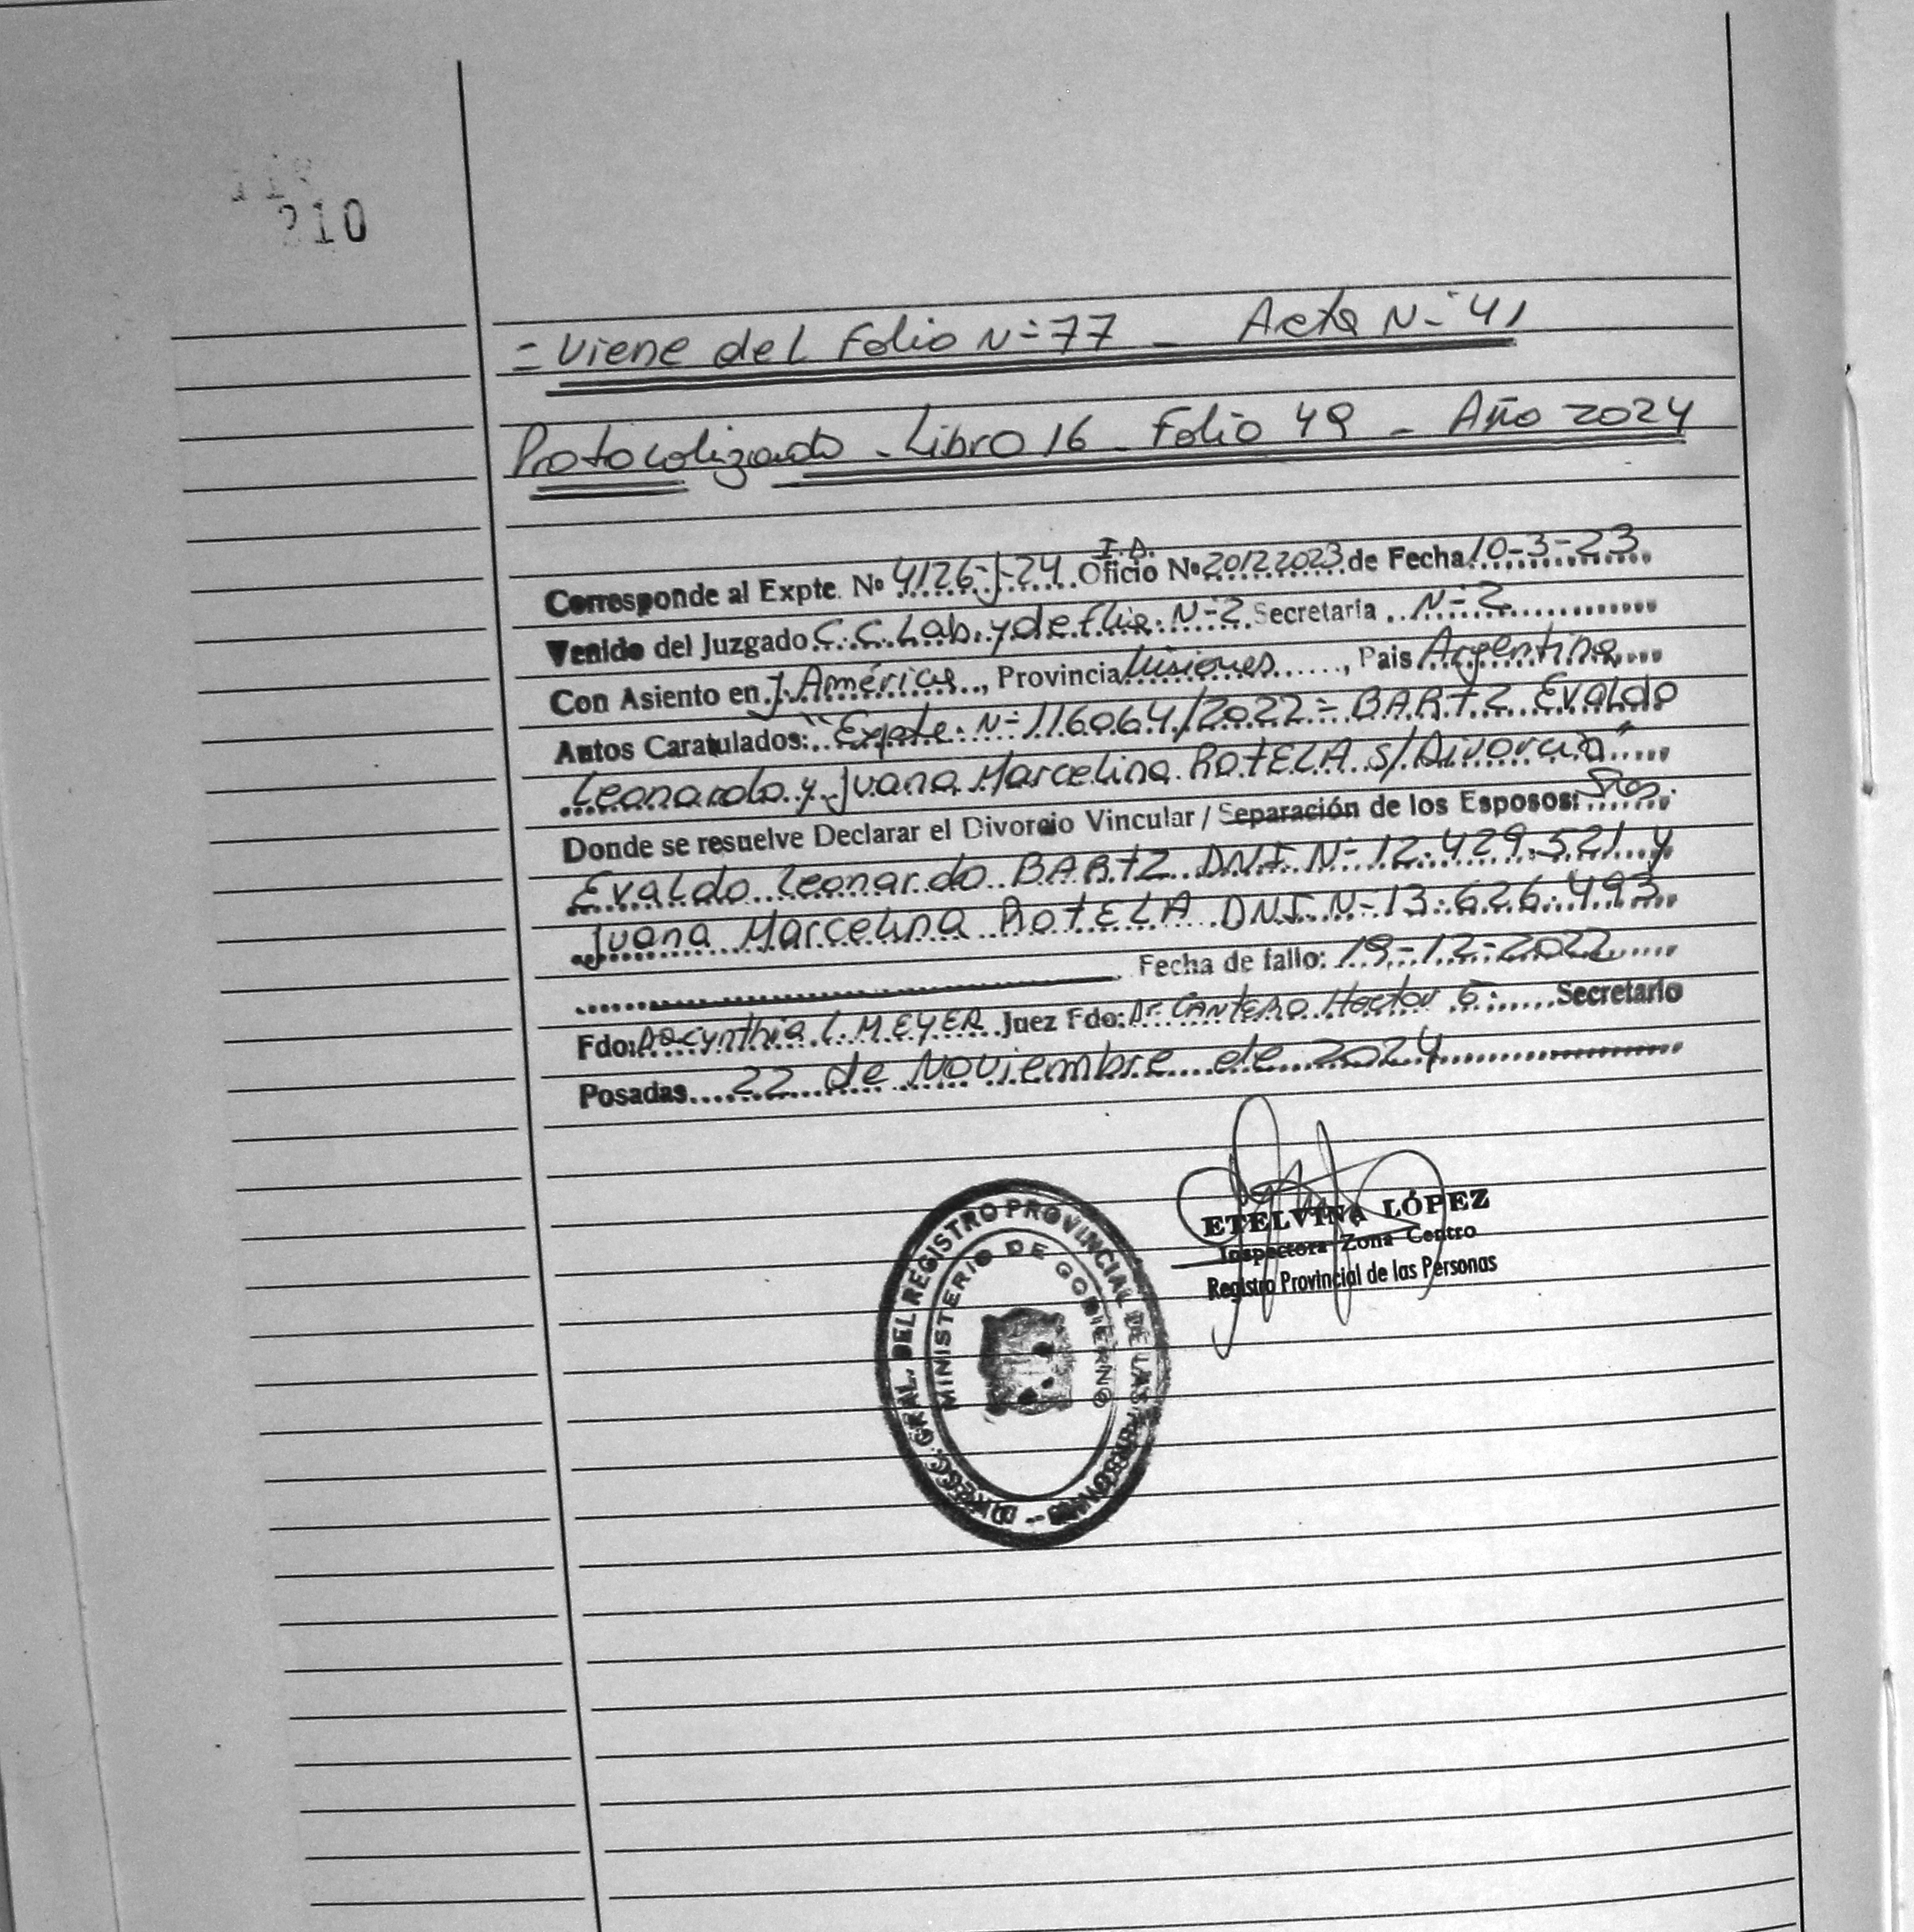 210
= Viene del Folio N-º 77 _ Acta N-º 41
Protocolizado - Libro 16 - Folio 49 - Año 2024
I.D.
Corresponde al Expte. Nº 4126-J-24 Oficio Nº 20122023 de Fecha 10-3-23
Venido del Juzgado C.C. Lab. y de Flia. N-º 2 Secretaría N-º 2
Con Asiento en J. América, Provincia Misiones, Pais Argentina
Autos Caratulados: "Expte. N-º 116064/2022 = BARTZ Evaldo
Leonardo y Juana Marcelina ROTELA s/Divorcio"
Donde se resuelve Declarar el Divorcio Vincular / Separación de los Esposos: Sres.
Evaldo Leonardo BARTZ DNI. N-º 12.429.521 y
Juana Marcelina ROTELA DNI. N-º 13.626.493
Fecha de fallo: 19-12-2022
Fdo: Cynthia L. MEYER Juez Fdo: Dr. CANTERO Hector Secretario
Posadas 22 de Noviembre de 2024
ETELVINA LÓPEZ
Inspectora Zona Centro
Registro Provincial de las Personas
DIRECC. GRAL. DEL REGISTRO PROVINCIAL DE LAS PERSONAS -
MINISTERIO DE GOBIERNO